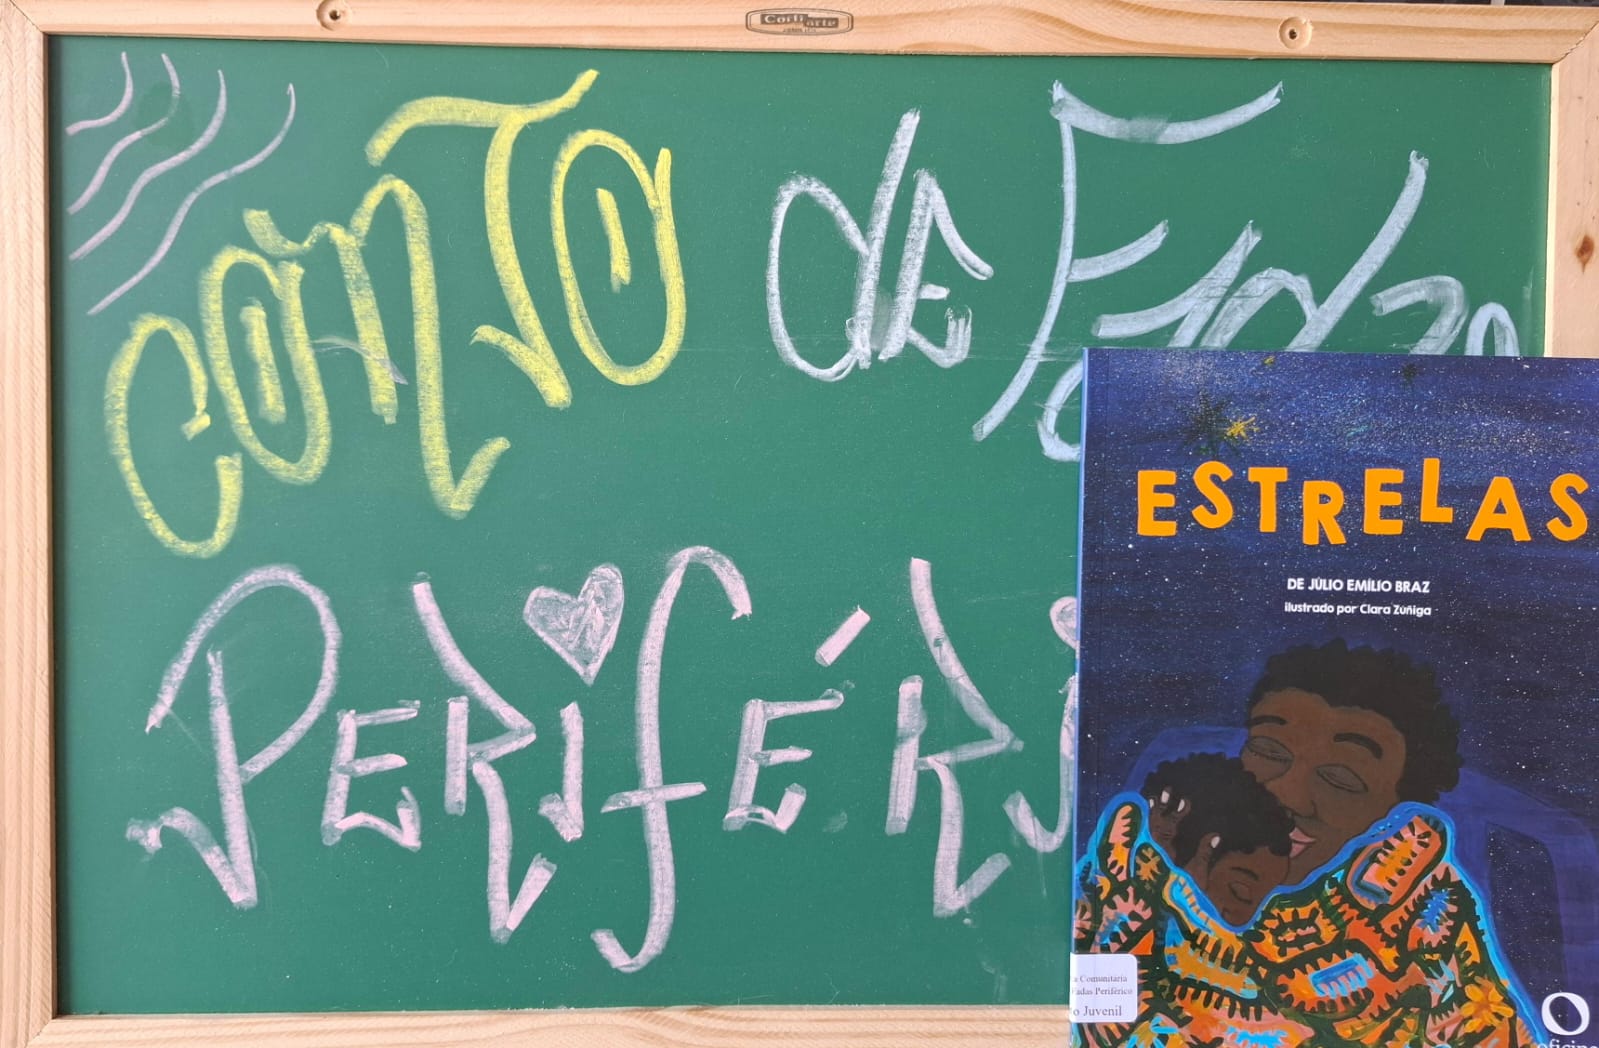 Corti arte
CONTO de Fadas
PERIFÉRI
ESTRELAS
DE JÚLIO EMÍLIO BRAZ
ilustrado por Clara Zúñiga
a Comunitária
Fadas Periférico
o Juvenil
oficina